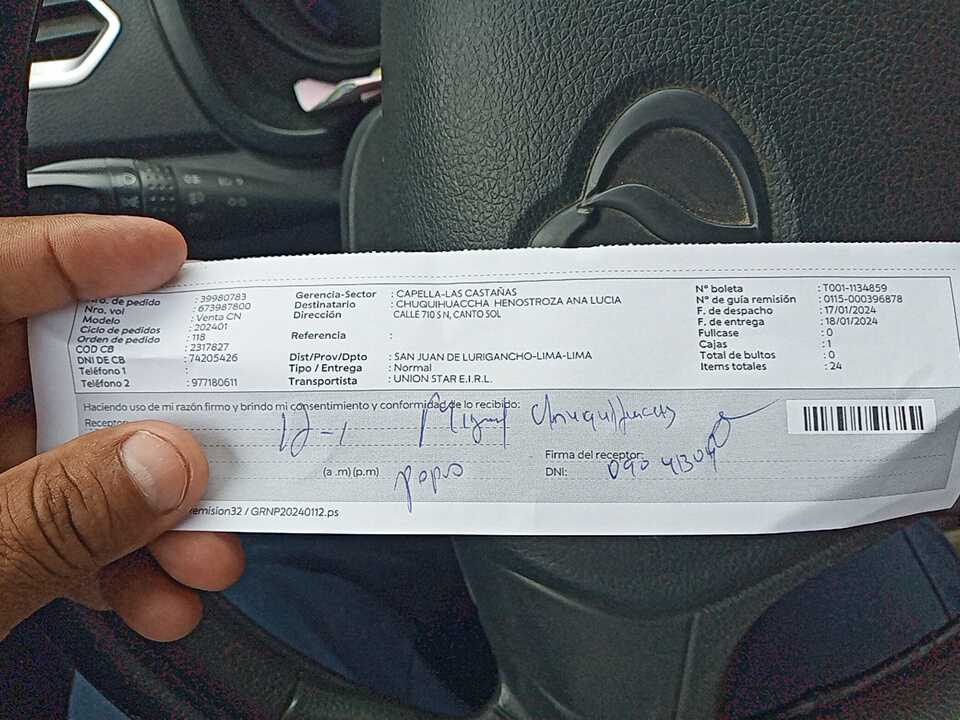 ro. de pedido : 39980783
Nro. vol : 673987800
Modelo : Venta CN
Ciclo de pedidos : 202401
Orden de pedido : 118
COD CB : 2317827
DNI DE CB : 74205426
Teléfono 1 :
Teléfono 2 : 977180611
Gerencia-Sector : CAPELLA-LAS CASTAÑAS
Destinatario : CHUQUIHUACCHA HENOSTROZA ANA LUCIA
Dirección CALLE 710 S N, CANTO SOL
Referencia :
Dist/Prov/Dpto : SAN JUAN DE LURIGANCHO-LIMA-LIMA
Tipo / Entrega : Normal
Transportista : UNION STAR E.I.R.L.
N° boleta : T001-1134859
N° de guía remisión : 0115-000396878
F. de despacho : 17/01/2024
F. de entrega : 18/01/2024
Fullcase : 0
Cajas : 1
Total de bultos : 0
Items totales : 24
Haciendo uso de mi razón firmo y brindo mi consentimiento y conformidad de lo recibido:
Receptor
Miguel
(a .m) (p.m)
papa
Firma del receptor:
DNI:
emision32 / GRNP20240112.ps